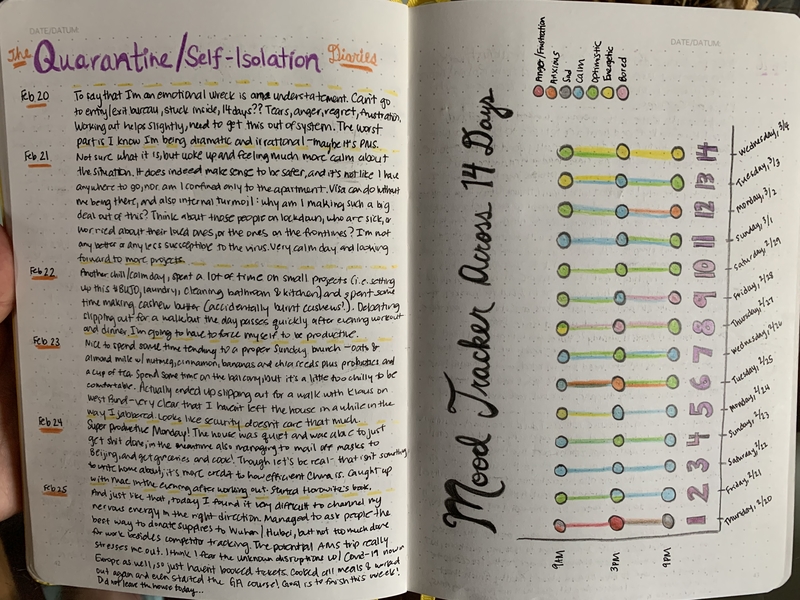 DATE/DATUM:
The Quarantine/Self-Isolation Diaries
Feb 20
To say that I'm an emotional wreck is an understatement. Can't go
to entry/exit bureau, stuck inside, 14 days?? Tears, anger, regret, frustration.
Working out helps slightly, need to get this out of system. The worst
part is I know I'm being dramatic and irrational - maybe it's PMS.
Feb 21
Not sure what it is, but woke up and feeling much more calm about
the situation. It does indeed make sense to be safer, and it's not like I have
anywhere to go, nor am I confined only to the apartment. Visa can do without
me being there, and also internal turmoil: why am I making such a big
deal out of this? Think about those people on lockdown, who are sick, or
worried about their loved ones, or the ones on the frontlines? I'm not
any better or any less susceptible to the virus. Very calm day and looking
forward to more projects.
Feb 22
Another chill/calm day, spent a lot of time on small projects (i.e. setting
up this BUJO, laundry, cleaning bathroom & kitchen) and spent some
time making cashew butter (accidentally burnt cashews!). Debating
slipping out for a walk but the day passes quickly after evening workout
and dinner. I'm going to have to force myself to be productive.
Feb 23
Nice to spend some time tending to a proper Sunday brunch - oats &
almond milk w/ nutmeg, cinnamon, bananas and chia seeds plus probiotics and
a cup of tea. Spend some time on the balcony, but it's a little too chilly to be
comfortable. Actually ended up slipping out for a walk with Klaus on
West Bund - very clear that I haven't left the house in a while in the
way I jabbered. Looks like security doesn't care that much.
Feb 24
Super productive Monday! The house was quiet and was able to just
get shit done, in the meantime also managing to mail off masks to
Beijing, and get groceries and cook! Though let's be real - that isn't something
to write home about, it's more credit to how efficient China is. Caught up
with mac in the evening after working out. Started Horowitz's book.
Feb 25
And just like that, today I found it very difficult to channel my
nervous energy in the right direction. Managed to ask people the
best way to donate supplies to Wuhan/Hubei, but not too much done
for work besides competitor tracking. The potential AMS trip really
stresses me out. I think I fear the unknown disruptions w/ Covid-19 now in
Europe as well, so just haven't booked tickets. Cooked all meals & worked
out again and even started the GA course! Goal is to finish this week!
Did not leave the house today...
DATE/DATUM:
Mood Tracker Across 14 Days
Anger/Frustration
Anxious
Sad
Calm
Optimistic
Energetic
Bored
9AM
3PM
9PM
1 Thursday, 2/20
2 Friday, 2/21
3 Saturday, 2/22
4 Sunday, 2/23
5 Monday, 2/24
6 Tuesday, 2/25
7 Wednesday, 2/26
8 Thursday, 2/27
9 Friday, 2/28
10 Saturday, 2/29
11 Sunday, 3/1
12 Monday, 3/2
13 Tuesday, 3/3
14 Wednesday, 3/4